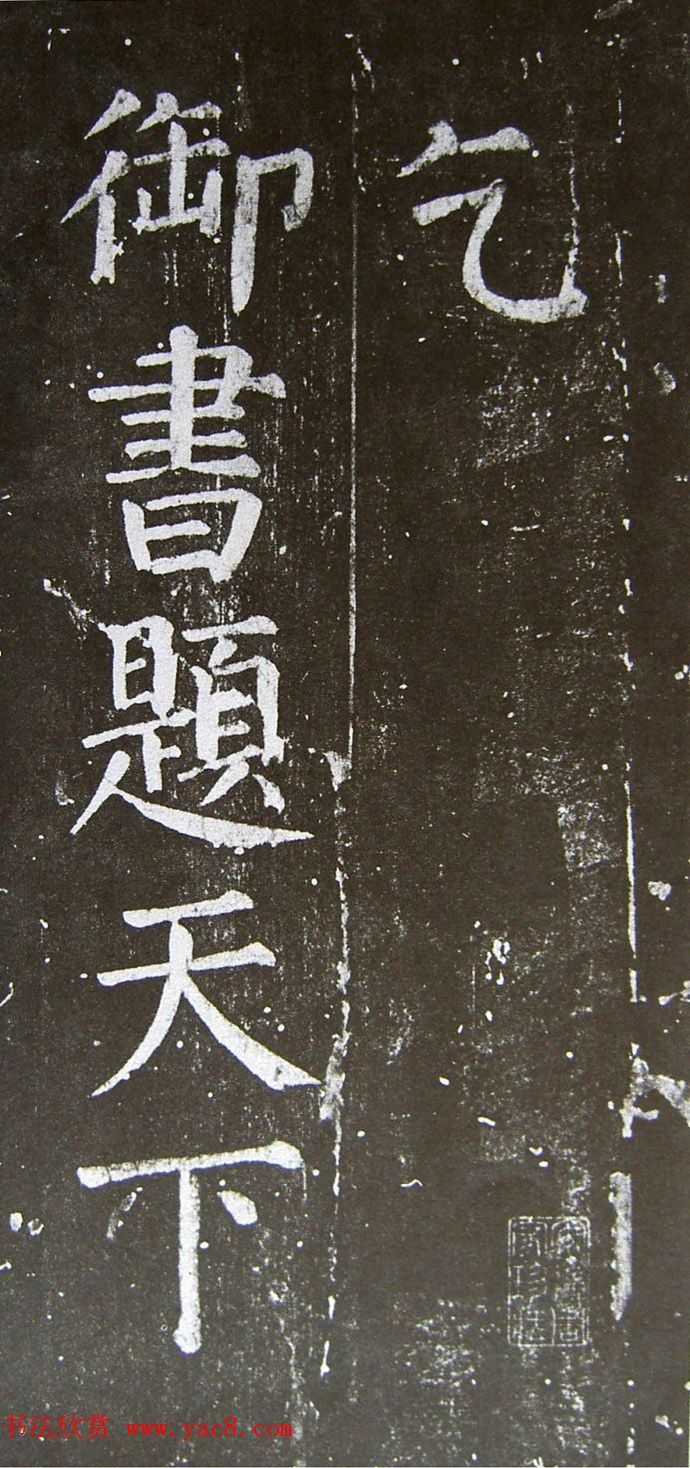 乞
御書題天下
书法欣赏 www.yac8.com